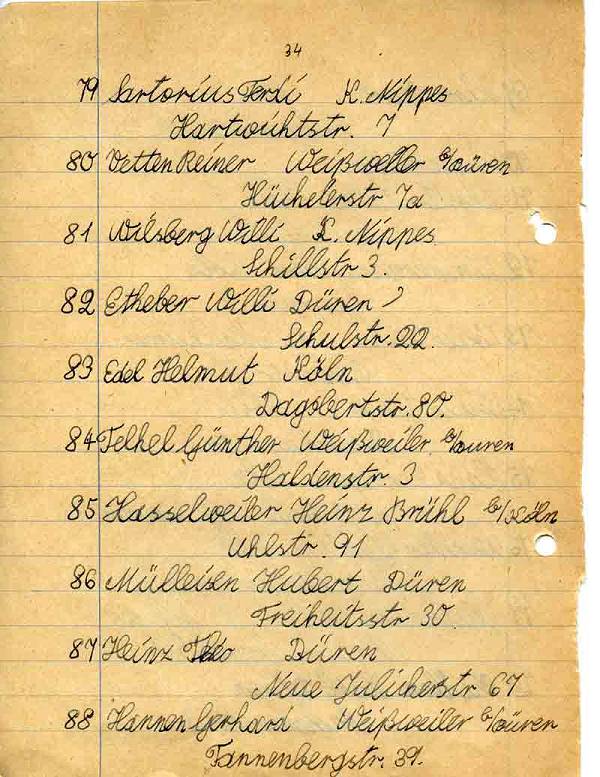 34
79 Sartorius Ferdi K. Nippes
Hartwichtstr. 7
80 Vetten Reiner Weißweiler b/Düren
Hüchelerstr 7a
81 Wilsberg Willi K. Nippes
Schillstr 3.
82 Etheber Willi Düren
Schulstr. 22.
83 Edel Helmut Köln
Dagobertstr. 80.
84 Felkel Günther Weißweiler b/Düren
Haldenstr. 3
85 Hasselweiler Heinz Brühl b/Köln
Uhlstr. 91
86 Mülleisen Hubert Düren
Freiheitsstr 30
87 Heinz Theo Düren
Neue Jülicherstr 67
88 Hannen Gerhard Weißweiler b/Düren
Tannenbergstr. 39.